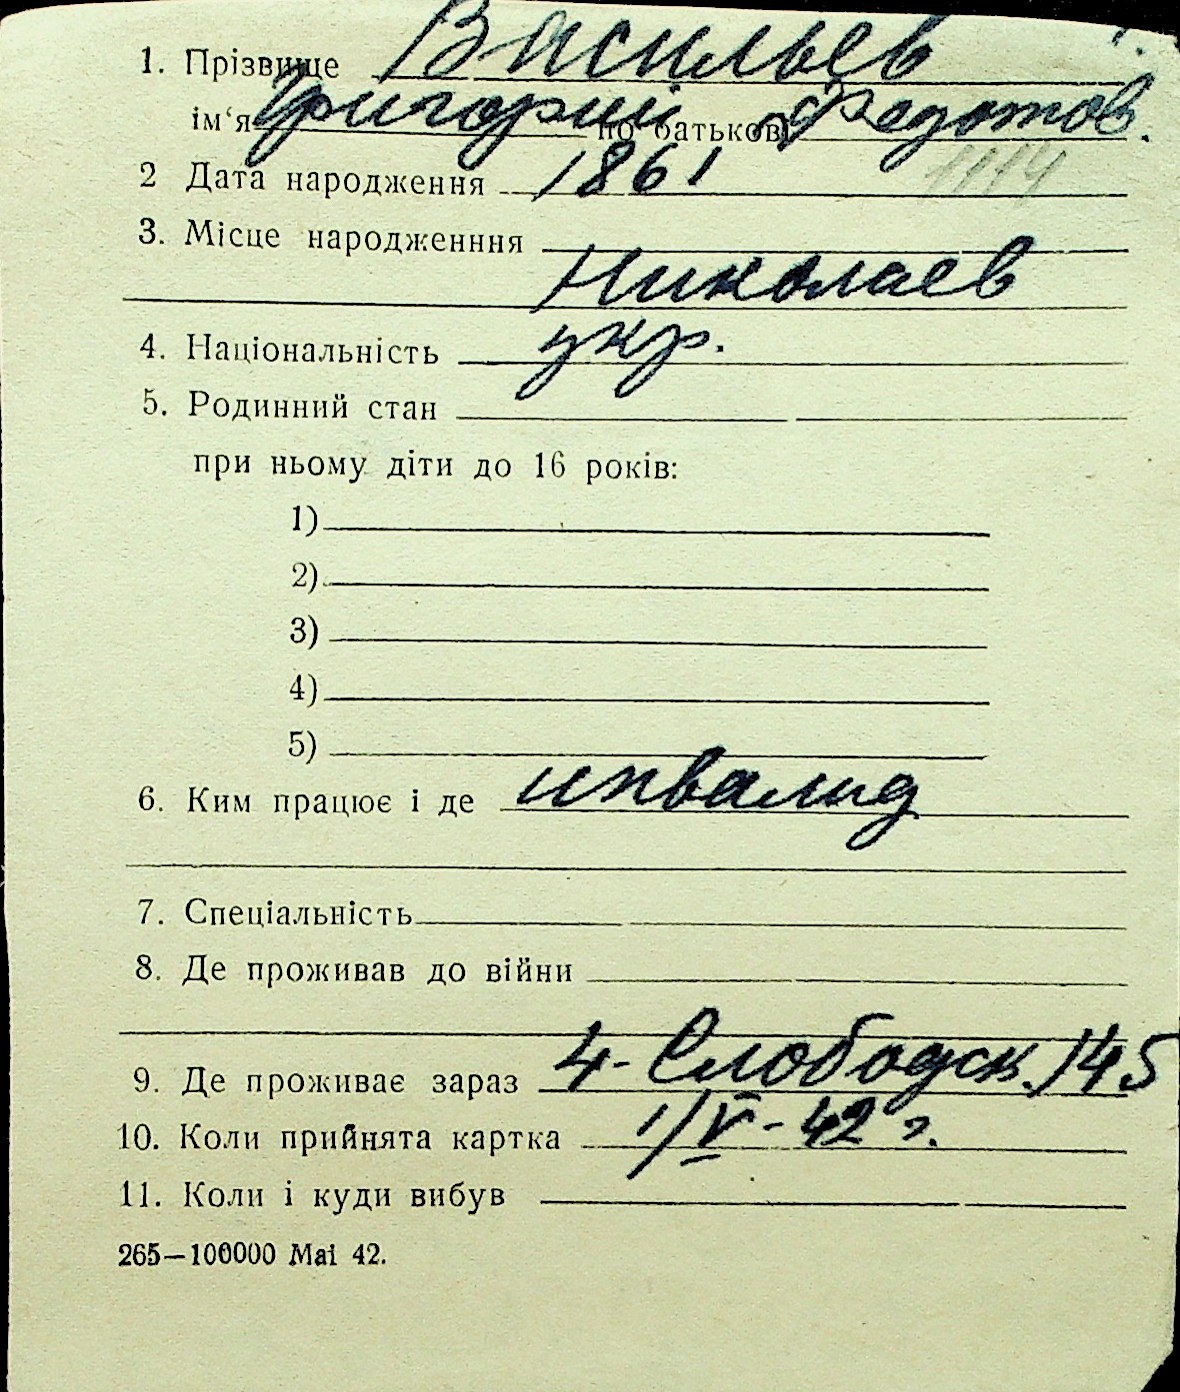 1. Прізвище Васильев
ім‘я Григорий по батькові Федотов.
2 Дата народження 1861 1114
3. Місце народженння
Николаев
4. Національність укр.
5. Родинний стан
при ньому діти до 16 років:
1)
2)
3)
4)
5)
6. Ким працює і де инвалид
7. Спеціальність
8. Де проживав до війни
9. Де проживає зараз 4-Слободск. 145
10. Коли прийнята картка 1/V-42 г.
11. Коли і куди вибув
265—100000 Mai 42.